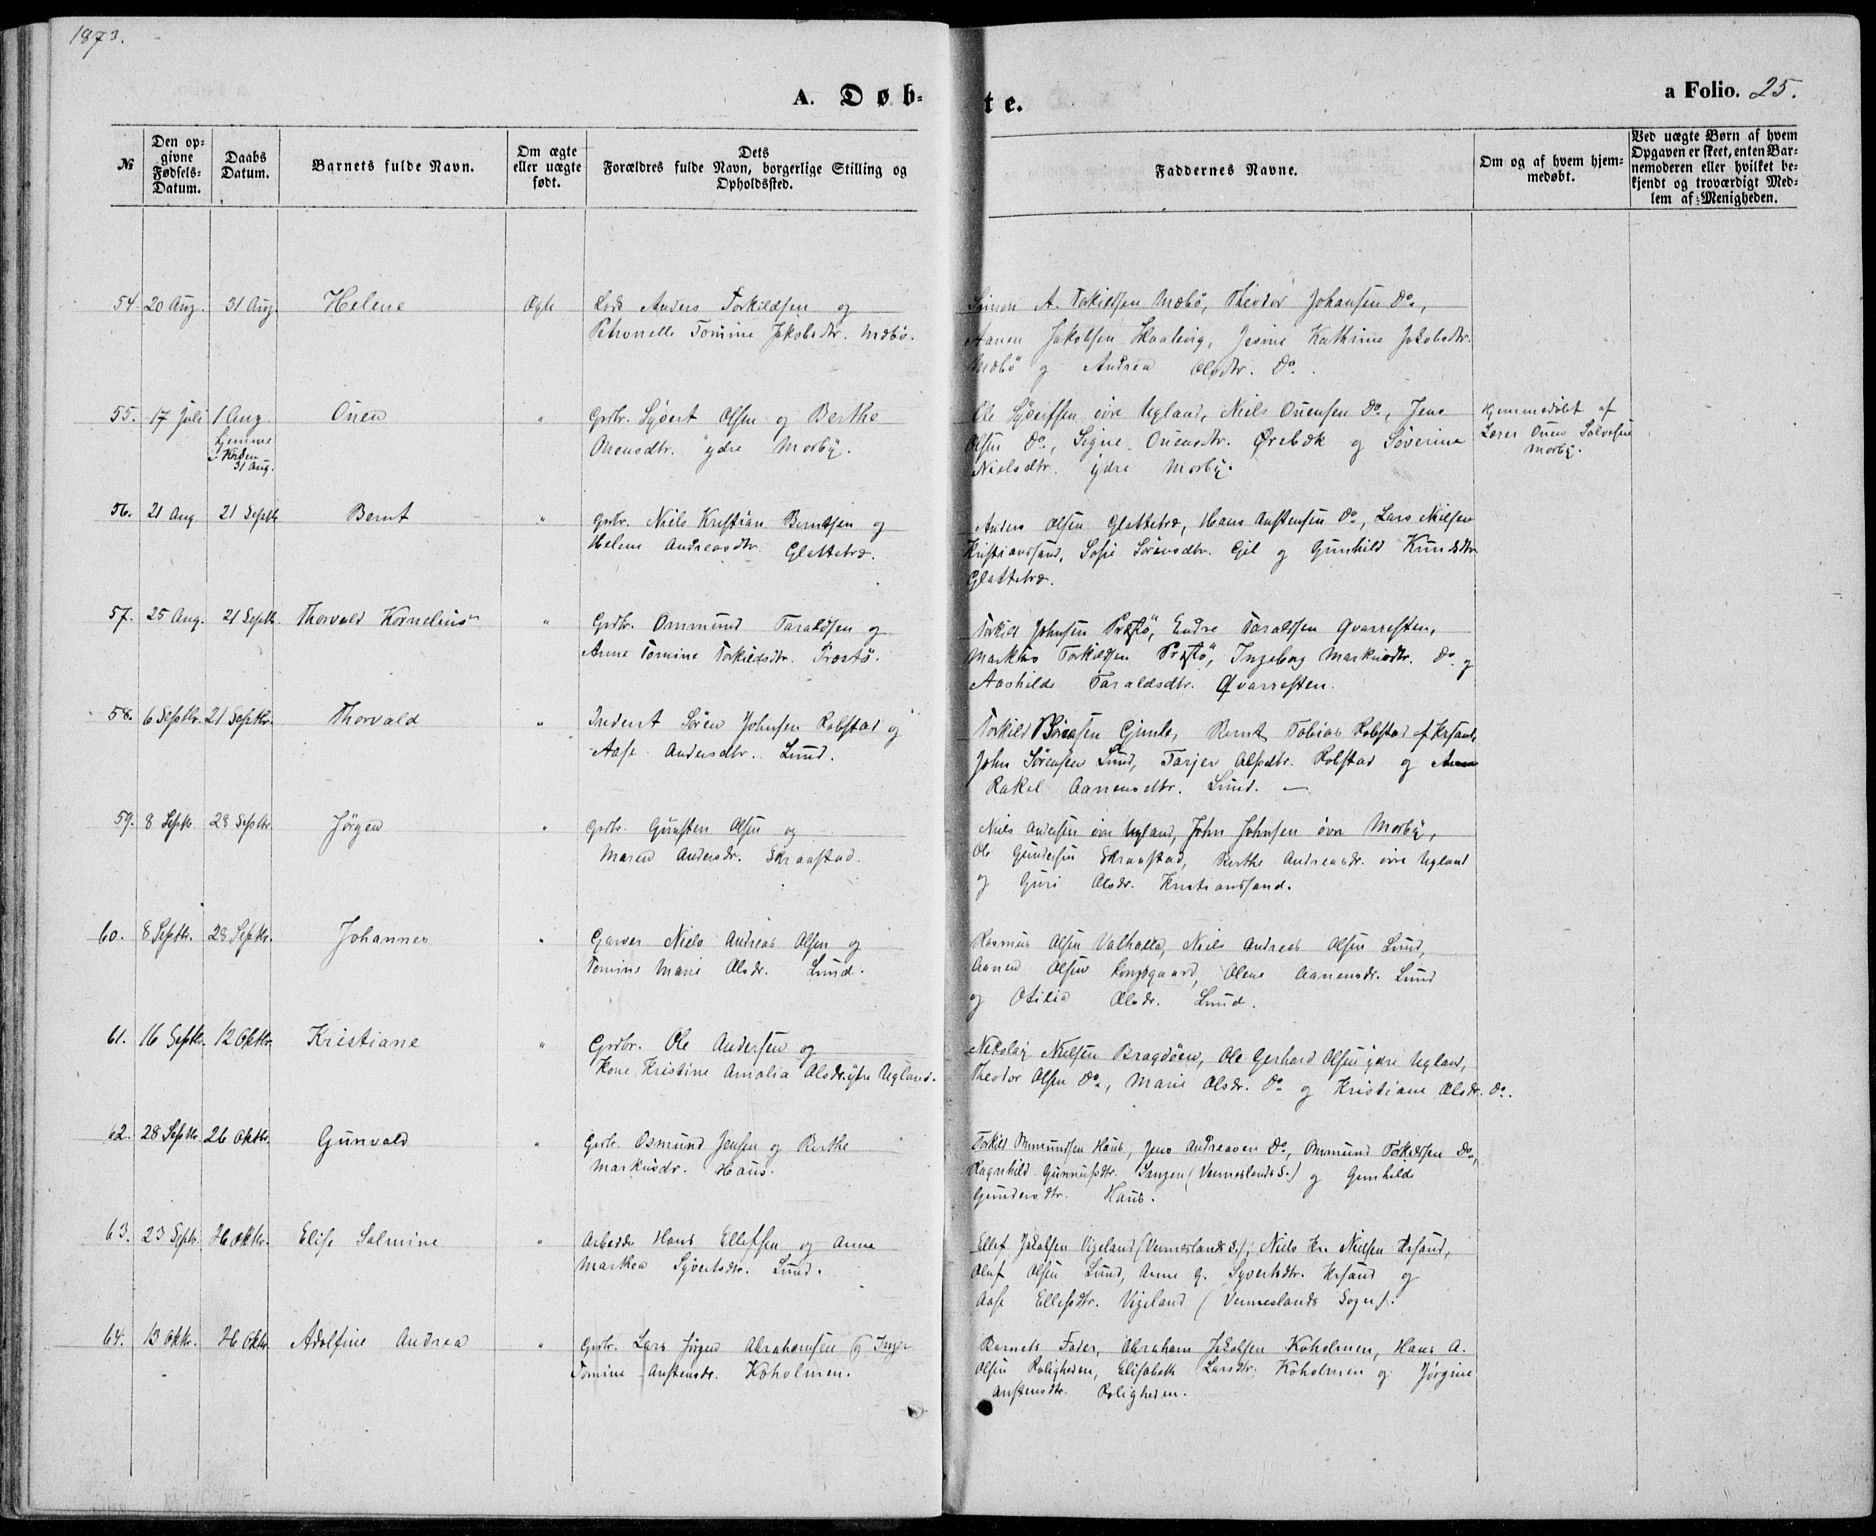 1873.
A. Døbte.
a Folio. 25.
№
Den opgivne Fødsels-Datum.
Daabs Datum.
Barnets fulde Navn.
Om ægte eller uægte født.
Dets Forældres fulde Navn, borgerlige Stilling og Opholdssted.
Faddernes Navne.
Om og af hvem hjemmedøbt.
Ved uægte Børn af hvem Opgaven er skeet, enten Barnemoderen eller hvilket bekjendt og troværdigt Medlem af Menigheden.
54. 20 Aug. 31 Aug. Helene Ægte Lods Anders Torkildsen og
Petronelle Tomine Jakobsdtr. Mæbø.
Simon A. Torkildsen Mæbø, Theodor Johansen Do.,
Aanen Jakobsen Skaalevig, Jesine Kathrine Jakobsdtr.
Mæbø og Andrea Olsdtr. Do.
55. 17 Juli 1 Aug. Ouen " Grdbr. Syvert Olsen og Berthe
hjemme
i Kirken
31 Aug.
Ouensdtr. ydre Morby.
Ole Syvertsen øvre Ugland, Niels Ouensen Do., Jens
Olsen Do., Signe Ouensdtr. Ørebæk og Søverine
Nielsdtr. ydre Morby.
Hjemmedøbt af
Lærer Ouen Salvesen
Morby.
56. 21 Aug. 21 Septbr. Bernt " Grdbr. Niels Kristian Berntsen og
Helene Andreasdtr. Glattetræ.
Anders Olsen Glattetræ, Hans Anstensen Do., Lars Nielsen
Kristianssand, Sofie Sørensdtr. Gil og Gunhild Knudsdtr.
Glattetræ.
57. 25 Aug. 21 Septbr. Thorvald Kornelius " Grdbr. Ommund Taraldsen og
Anne Tomine Torkildsdtr. Prestø.
Torkild Johnsen Præstø, Endre Taraldsen Qvarresten,
Markus Torkildsen Præstø, Ingeborg Markusdtr. Do. og
Aashilde Taraldsdtr. Qvarresten.
58. 6 Septbr. 21 Septbr. Thorvald " Inderst Søren Johnsen Robstad og
Aase Andersdtr. Lund.
Torkild Gimle, Bernt Tobias Robstad af Krsand,
John Sørensen Lund, Tarjer Olsdtr. Robstad og
Rakel Aanensdtr. Lund.
59. 8 Septbr. 28 Septbr. Jørgen " Grdbr. Gunsten Olsen og
Maren Andersdr. Skraastad.
Niels Andersen øvre Ugland, John Johnsen øvre Morby,
Ole Gundersen Skraastad, Berthe Andreasdr. øvre Ugland
og Guri Olsdr. Kristianssand.
60. 8 Septbr. 28 Septbr. Johannes " Garver Niels Andreas Olsen og
Tomine Marie Olsdr. Lund.
Rasmus Olsen Valhalla, Niels Andreas Olsen Lund,
Aanen Olsen Kongsgaard, Olene Aanensdr. Lund
og Otilia Olsdr. Lund.
61. 16 Septbr. 12 Oktbr. Kristiane " Grdbr. Ole Andersen og
Kone Kristine Amalia Olsdr. ytre Ugland.
Nikolaj Nielsen Bragdøen, Ole Gerhard Olsen ydre Ugland,
Theodor Olsen Do., Marie Olsdr. Do. og Kristiane Olsdr. Do.
62. 28 Septbr. 26 Oktbr. Gunvald " Grdbr. Osmund Jensen og Berthe
Markusdr. Haus.
Torkild Ommundsen Haus, Jens Andreasen Do., Ommund Torkildsen Do.,
Ragnhild Gunnufsdtr. Langen (Venneslands S.) og Gunhilde
Gundersdtr. Haus.
63. 23 Septbr. 26 Oktbr. Elise Salmine " Arbeider Hans Ellefsen og Anne
Markea Syvertsdtr. Lund.
Ellef Jakobsen Vigeland (Venneslands S.), Niels Kr. Nielsen Krsand,
Oluf Olsen Lund, Anne G. Syvertsdtr. Krsand og
Aase Ellefsdtr. Vigeland (Venneslands Sogn).
64. 13 Oktbr. 26 Oktbr. Adolfine Andrea " Grdbr. Lars Jørgen Abrahamsen og Inger
Tomine Anstensdr. Koholmen.
Barnets Fader, Abraham Jakobsen Koholmen, Hans A.
Olsen Roligheden, Elisabeth Larsdtr. Koholmen og Jørgine
Anstensdtr. Roligheden.